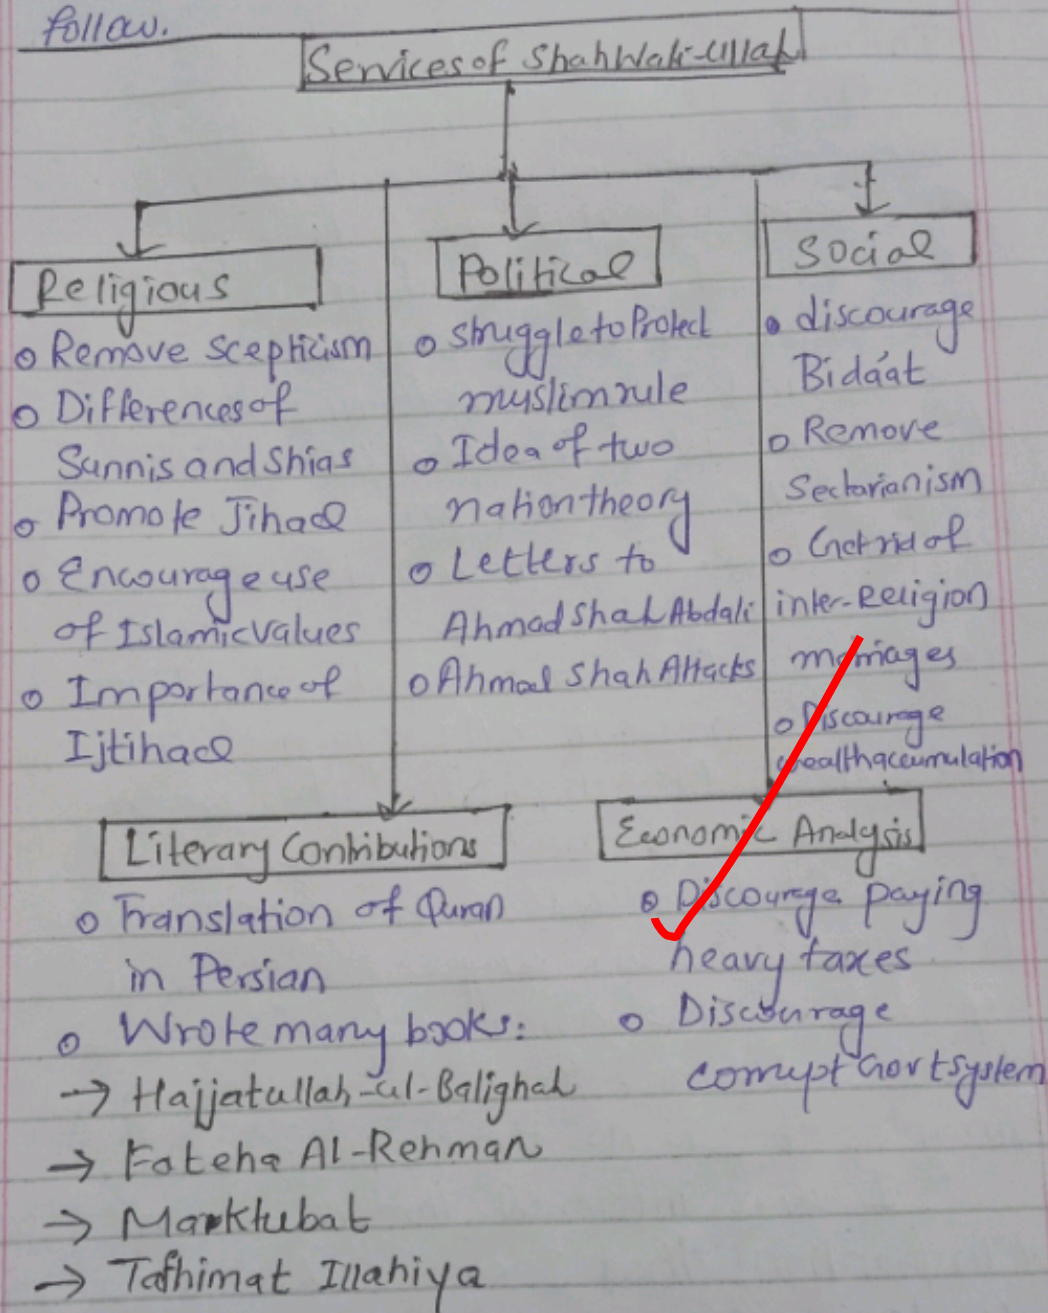 follow.
Services of Shah Wali-Ullah
Religious
o Remove scepticism
o Differences of
Sunnis and Shias
o Promote Jihad
o Encourage use
of Islamic values
o Importance of
Ijtihad
Political
o struggle to Protect
muslim rule
o Idea of two
nation theory
o Letters to
Ahmad Shah Abdali
o Ahmad Shah Attacks
Social
o discourage
Bidáat
o Remove
Sectarianism
o Get rid of
inter-Religion
marriages
o Discourage
wealth accumulation
Literary Contributions
o Translation of Quran
in Persian
o Wrote many books:
→ Hajjatullah-ul-Balighah
→ Fateha Al-Rehman
→ Marktubat
→ Tafhimat Illahiya
Economic Analysis
o Discourage paying
heavy taxes
o Discourage
corrupt Govt system